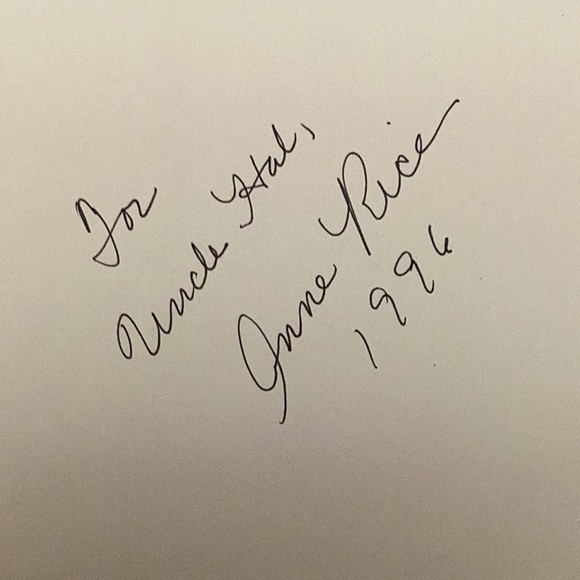 For
Uncle Hal,
Anne Rice
1996